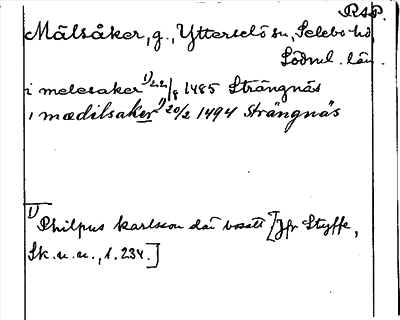 RSP.
Mälsåker, g., Ytterselö sn, Selebo hd,
Södml. län.
i melesaker 1) 22/8 1485 Strängnäs
i mædilsaker 1) 20/2 1494 Strängnäs
1) Philpus karlsson där bosatt [Jfr Styffe,
Sk.u.u., 1.234.]